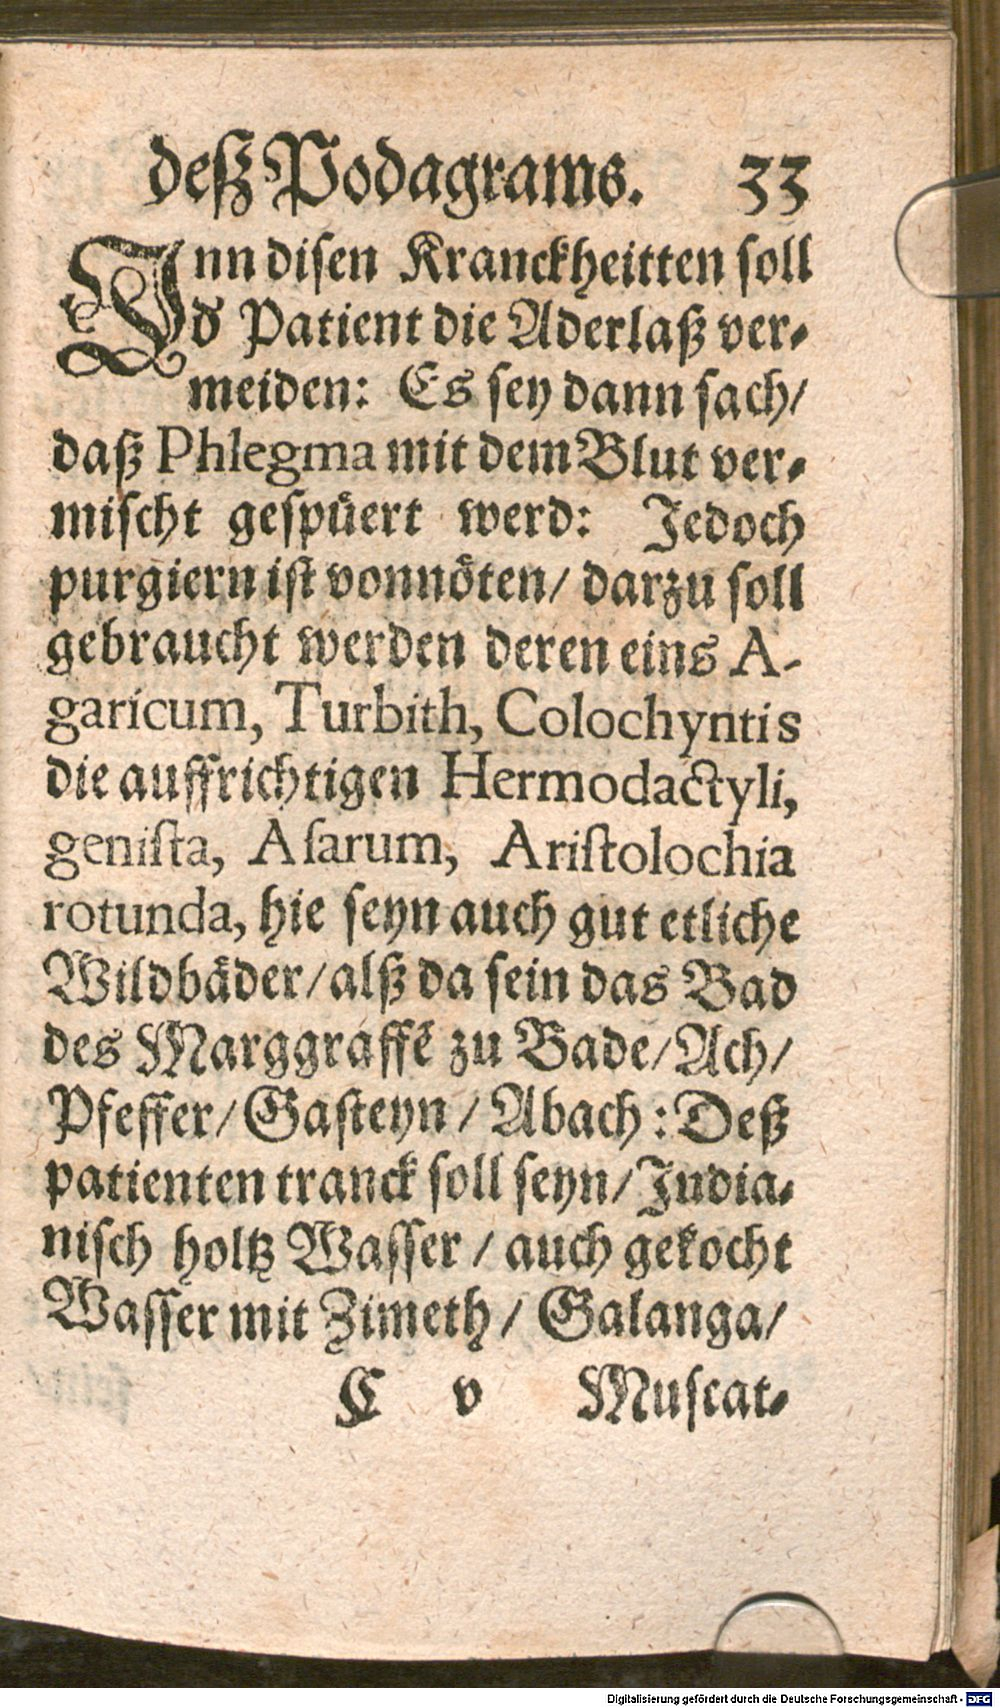 deß Podagrams. 33
Inn disen Kranckheitten soll
d' Patient die Aderlaß ver-
meiden: Es sey dann sach/
daß Phlegma mit dem Blut ver-
mischt gespüert werd: Jedoch
purgiern ist vonnöten/ darzu soll
gebraucht werden deren eins A-
garicum, Turbith, Colochyntis
die auffrichtigen Hermodactyli,
genista, Asarum, Aristolochia
rotunda, hie seyn auch gut etliche
Wildbäder/ alß da sein das Bad
des Marggraffẽ zu Bade/ Ach/
Pfeffer/ Gasteyn / Abach: Deß
patienten tranck soll seyn/ India-
nisch holtz Wasser / auch gekocht
Wasser mit Zimeth/ Galanga/
C v Muscat-
Digitalisierung gefördert durch die Deutsche Forschungsgemeinschaft - DFG